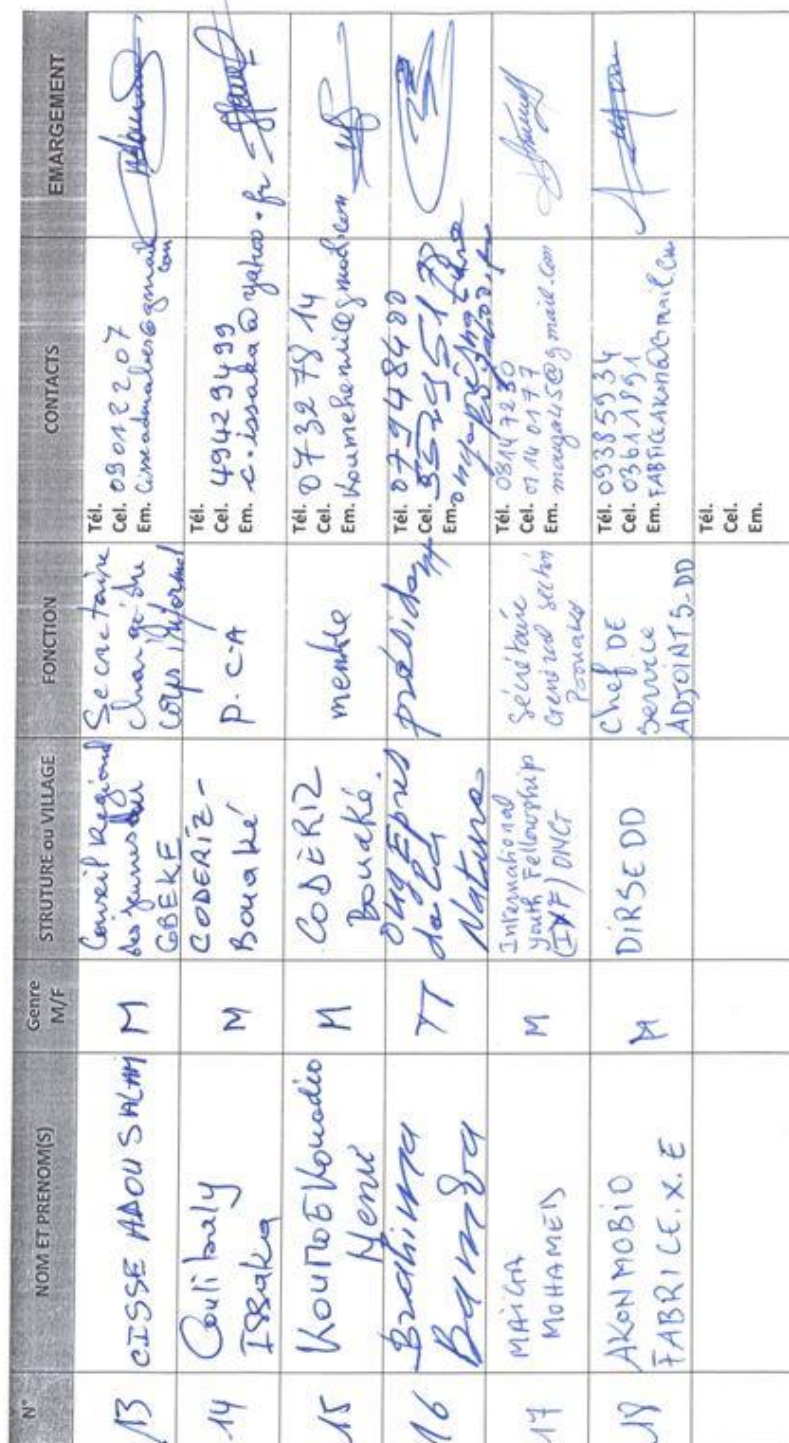 N° NOM ET PRENOM(S) Genre M/F STRUTURE ou VILLAGE FONCTION CONTACTS EMARGEMENT
13
CISSE ABOU SALAM
M
Conseil Régional
des jeunes du
GBEKE
Secretaire
chargé du
corps informel
Tél. 09012207
Cel.
Em.
14
Coulibaly
Issaka
M
CODERIZ-
Bouaké
P.C.A
Tél.
Cel. 49429499
Em. c.issaka@yahoo.fr
15
KOUMOE Kouadio
Henri
M
CODERIZ
Bouaké.
membre
Tél.
Cel. 07327814
Em. koumehenri@gmail.com
16
Brahima
Bamba
M
ONG Epris
de la
Nature
président
Tél. 07948400
Cel.
Em.
17
MAIGA
MOHAMED
M
International
Youth Fellowship
(IYF) ONG
Sécrétaire
Général section
Bouaké
Tél. 08147230
Cel. 01140177
Em. maiga45@gmail.com
18
AKONMOBIO
FABRICE.X.E
M
DIRSEDD
Chef DE
Service
ADJOINT S-DD
Tél. 09385934
Cel. 03611891
Em.
Tél.
Cel.
Em.